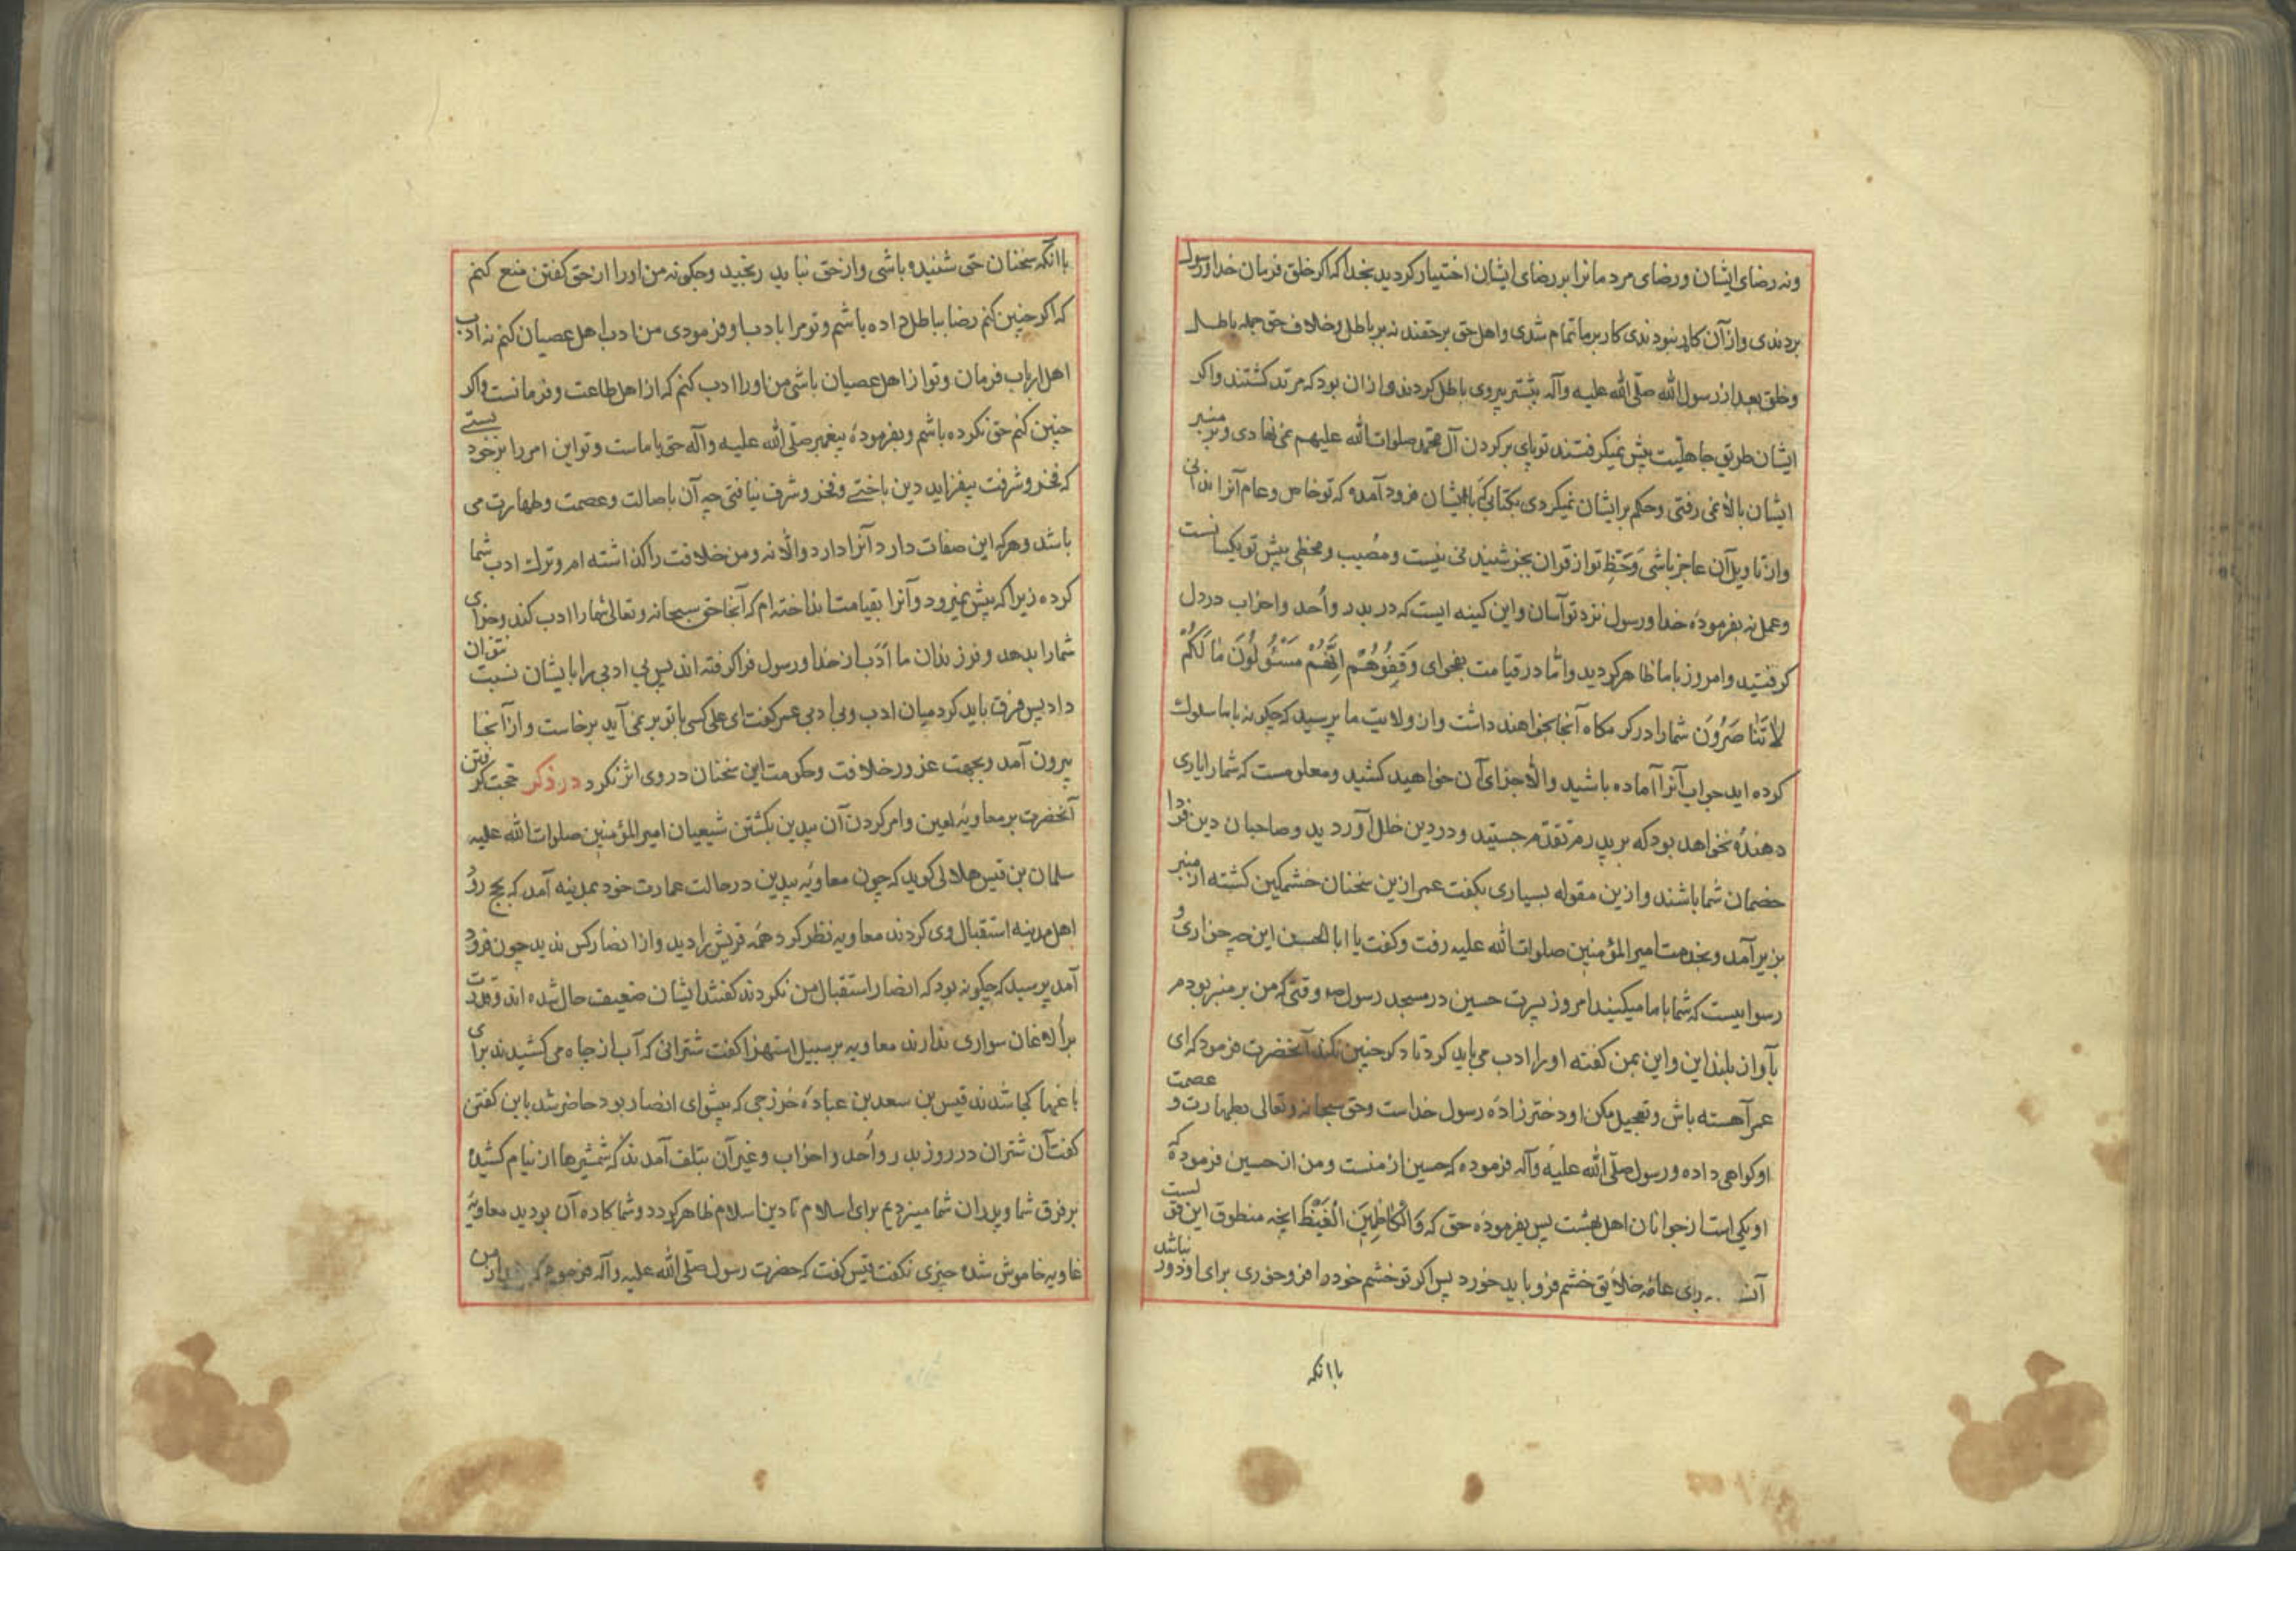 ونه رضای ایشان ورضای مردمانرا بر رضای ایشان اختیار کردید بخدا که اکر خلق فرمان خدا ورسول
بردندی واز آن کاره نبودندی کار بر ما تمام شدی واهل حق بر حقند نه بر باطل وخلاف حق جمله باطل
وخلق بعد از رسول الله صلّی الله علیه وآله بیشتر پیروی باطل کردند واز ان بود که مرتد کشتند واکر
ایشان طریق جاهلیّت پیش نمیکرفتند تو پای بر کردن آل محمّد صلوات الله علیهم نمی نهادی وبر منبر
ایشان بالا نمی رفتی وحکم بر ایشان نمیکردی بکتابی که با ایشان فرود آمده که تو خاص وعام آنرا ندانی
واز تاویل آن عاجز باشی وَحَظِّ تو از قران بجز شنیدنی نیست ومُصیب ومخطی پیش تو یکسانست
وعمل نه بفرمودۀ خدا ورسول نزد تو آسان واین کینه ایست که در بدر واُحد واحزاب در دل
کرفتید وامروز با ما ظاهر کردید وامّا در قیامت بفحوای وَقِفُوهُمْ اِنَّهُمْ مَسْئُولُونَ مٰا لَکُمْ
لاٰ تَنٰاصَرُونَ شما را در کرمکاه آنجا بخواهند داشت واز ولایت ما پرسید که چکونه با ما سلوک
کرده اید جواب آنرا آماده باشید والّا جزای آن خواهید کشید ومعلومست که شما را یاری
دهندۀ نخواهد بود که بر پدرم تقدّم جستید ودر دین خلل آوردید وصاحبان دین فردا
خصمان شما باشند وازین مقوله بسیاری بکفت عمر ازین سخنان خشمکین کشته از منبر
بزیر آمد وبخدمت امیر المؤمنین صلوات الله علیه رفت وکفت یا ابا الحسن این چه خواری و
رسواییست که شما با ما میکنید امروز پسرت حسین در مسجد رسول وقتی که من بر منبر بودم
بآواز بلند این واین بمن کفته او را ادب می باید کرد تا دکر چنین نکند آنحضرت فرمود که ای
عمر آهسته باش وتعجیل مکن او دختر زادۀ رسول خداست وحق سبحانه وتعالی بطهارت و عصمت
او کواهی داده ورسول صلّی الله علیه وآله فرموده که حسین از منست ومن از حسین فرموده که
او یکی است از جوانان اهل بهشت پس بفرمودۀ حق که وَالْکٰاظِمینَ الْغَیْظَ آنچه منطوق این قولست
آن برای عامّه خلایق خشم فرو باید خورد پس اکر تو خشم خود را فرو خوری برای او دور نباشد
با آنکه
با آنکه سخنان حق شنیده باشی واز حق نباید رنجید وچکونه من او را از حق کفتن منع کنم
که اکر چنین کنم رضا بباطل داده باشم وتو مرا بادب او فرمودی من ادب اهل عصیان کنم نه ادب
اهل ارباب فرمان وتو از اهل عصیان باشی من او را ادب کنم که از اهل طاعت وفرمانست واکر
چنین کنم حق نکرده باشم وبفرمودۀ پیغمبر صلّی الله علیه وآله حق با ماست وتو این امر را بر خود بستی
که فخر وشرفت بیفزاید دین باختی وفخر وشرف نیافتی چه آن باصالت وعصمت وطهارت می
باشد وهر که این صفات دارد آنرا دارد والّا نه ومن خلافت را کذاشته ام وترک ادب شما
کرده زیرا که پیش نمیرود وآنرا بقیامت انداخته ام که آنجا حق سبحانه وتعالی شما را ادب کند وجزای
شما را بدهد وفرزندان ما اَدَب از خدا ورسول فرا کرفته اند پس بی ادبی را بایشان نسبت نتوان
داد پس فرق باید کرد میان ادب وبی ادبی عمر کفت ای علی کسی با تو بر نمی آید برخاست واز آنجا
بیرون آمد وبجهت غرور خلافت وحکومت این سخنان در وی اثر نکرد در ذکر حجت کرفتن
آنحضرت بر معاویۀ لعین وامر کردن آن بیدین بکشتن شیعیان امیر المؤمنین صلوات الله علیه
سلمان بن قیس هلالی کوید که چون معاویۀ بیدین در حالت عمارت خود بمدینه آمد که بحج رود
اهل مدینه استقبال وی کردند معاویه نظر کرد همه قریش را دید واز انصار کس ندید چون فرود
آمد پرسید که چکونه بود که انصار استقبال من نکردند کفتند ایشان ضعیف حال شده اند وقدرت
بر الاغان سواری ندارند معاویه بر سبیل استهزا کفت شترانی که آب از چاه می کشیدند برای
باغها کجا شدند قیس بن سعد بن عبادۀ خزرجی که پیشوای انصار بود حاضر شد باین کفتن
کفت آن شتران در روز بدر واُحد واحزاب وغیر آن بتلف آمدند که شمشیرها از نیام کشیده
بر فرق شما وپدران شما میزدیم برای اسلام تا دین اسلام ظاهر کردد وشما کاره آن بودید معاویۀ
غاویه خاموش شده چیزی نکفت قیس کفت که حضرت رسول صلّی الله علیه وآله فرموده که بعد از من